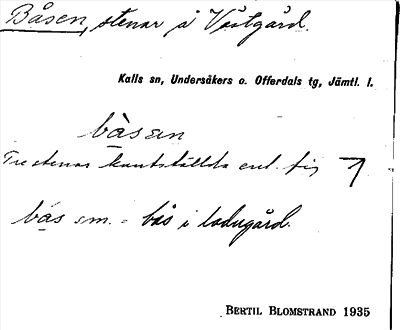 Båsen, stenar i Västgård.
Kalls sn, Undersåkers o. Offerdals tg, Jämtl. l.
bàsan
Tre stenar kantställda enl. fig
bås sm. = bås i ladugård.
BERTIL BLOMSTRAND 1935